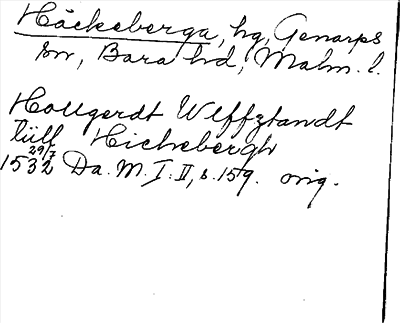 Häckeberga, hg, Genarps
sn, Bara hd, Malm. l.
Hollgerdt Wlffztandt
tüll Hickebergh
29/7
1532 Da. M. I: II, s. 159. orig.